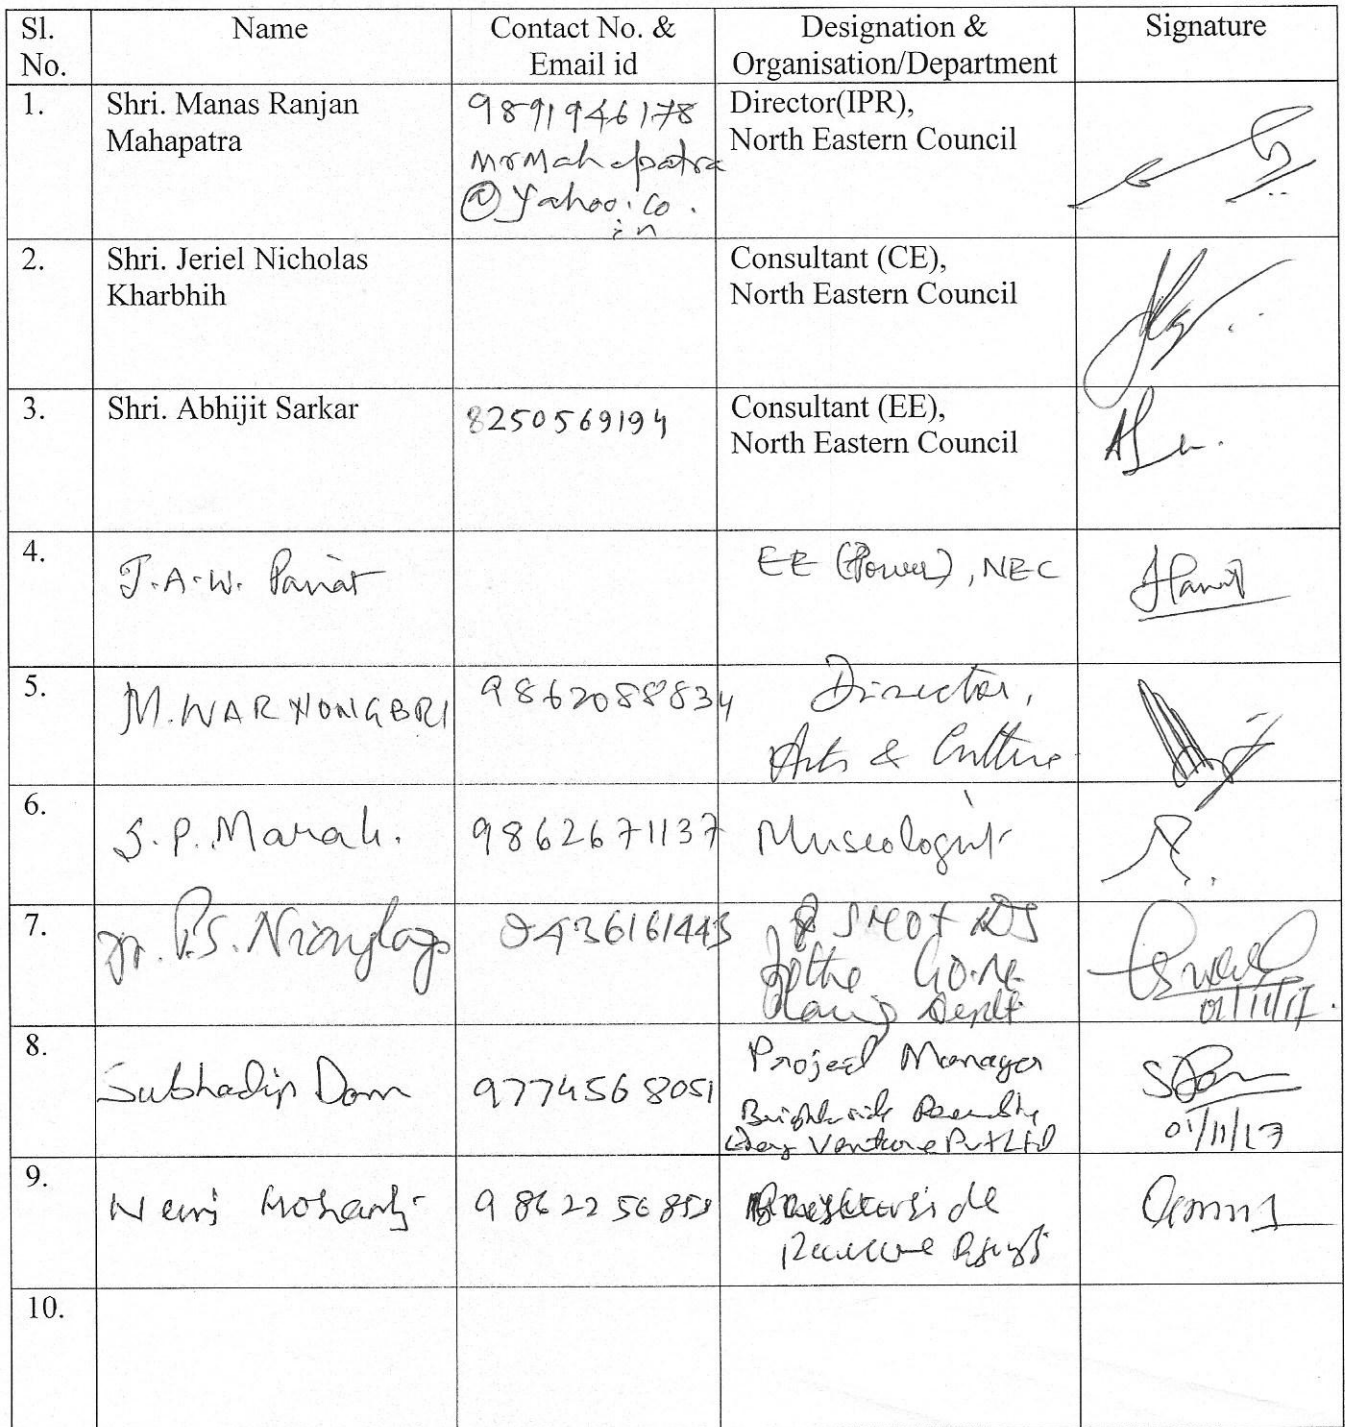 Sl. No. Name Contact No. & Email id Designation & Organisation/Department Signature
1. Shri. Manas Ranjan Mahapatra 9891946178 Director(IPR),
mrmahapatra North Eastern Council
@yahoo.co.
in
2. Shri. Jeriel Nicholas Kharbhih Consultant (CE),
North Eastern Council
3. Shri. Abhijit Sarkar 8250569194 Consultant (EE),
North Eastern Council
4. J.A.W. Pariat EE (Power), NEC
5. M. WAR NONGBRI 9862088834 Director,
Arts & Culture
6. S.P. Marak. 9862671137 Museologist
7. 9436161443
01/11/17.
8. Subhadip Dam 9774568051 Project Manager
Venture Pvt Ltd
01/11/17
9. Brighterside
10.